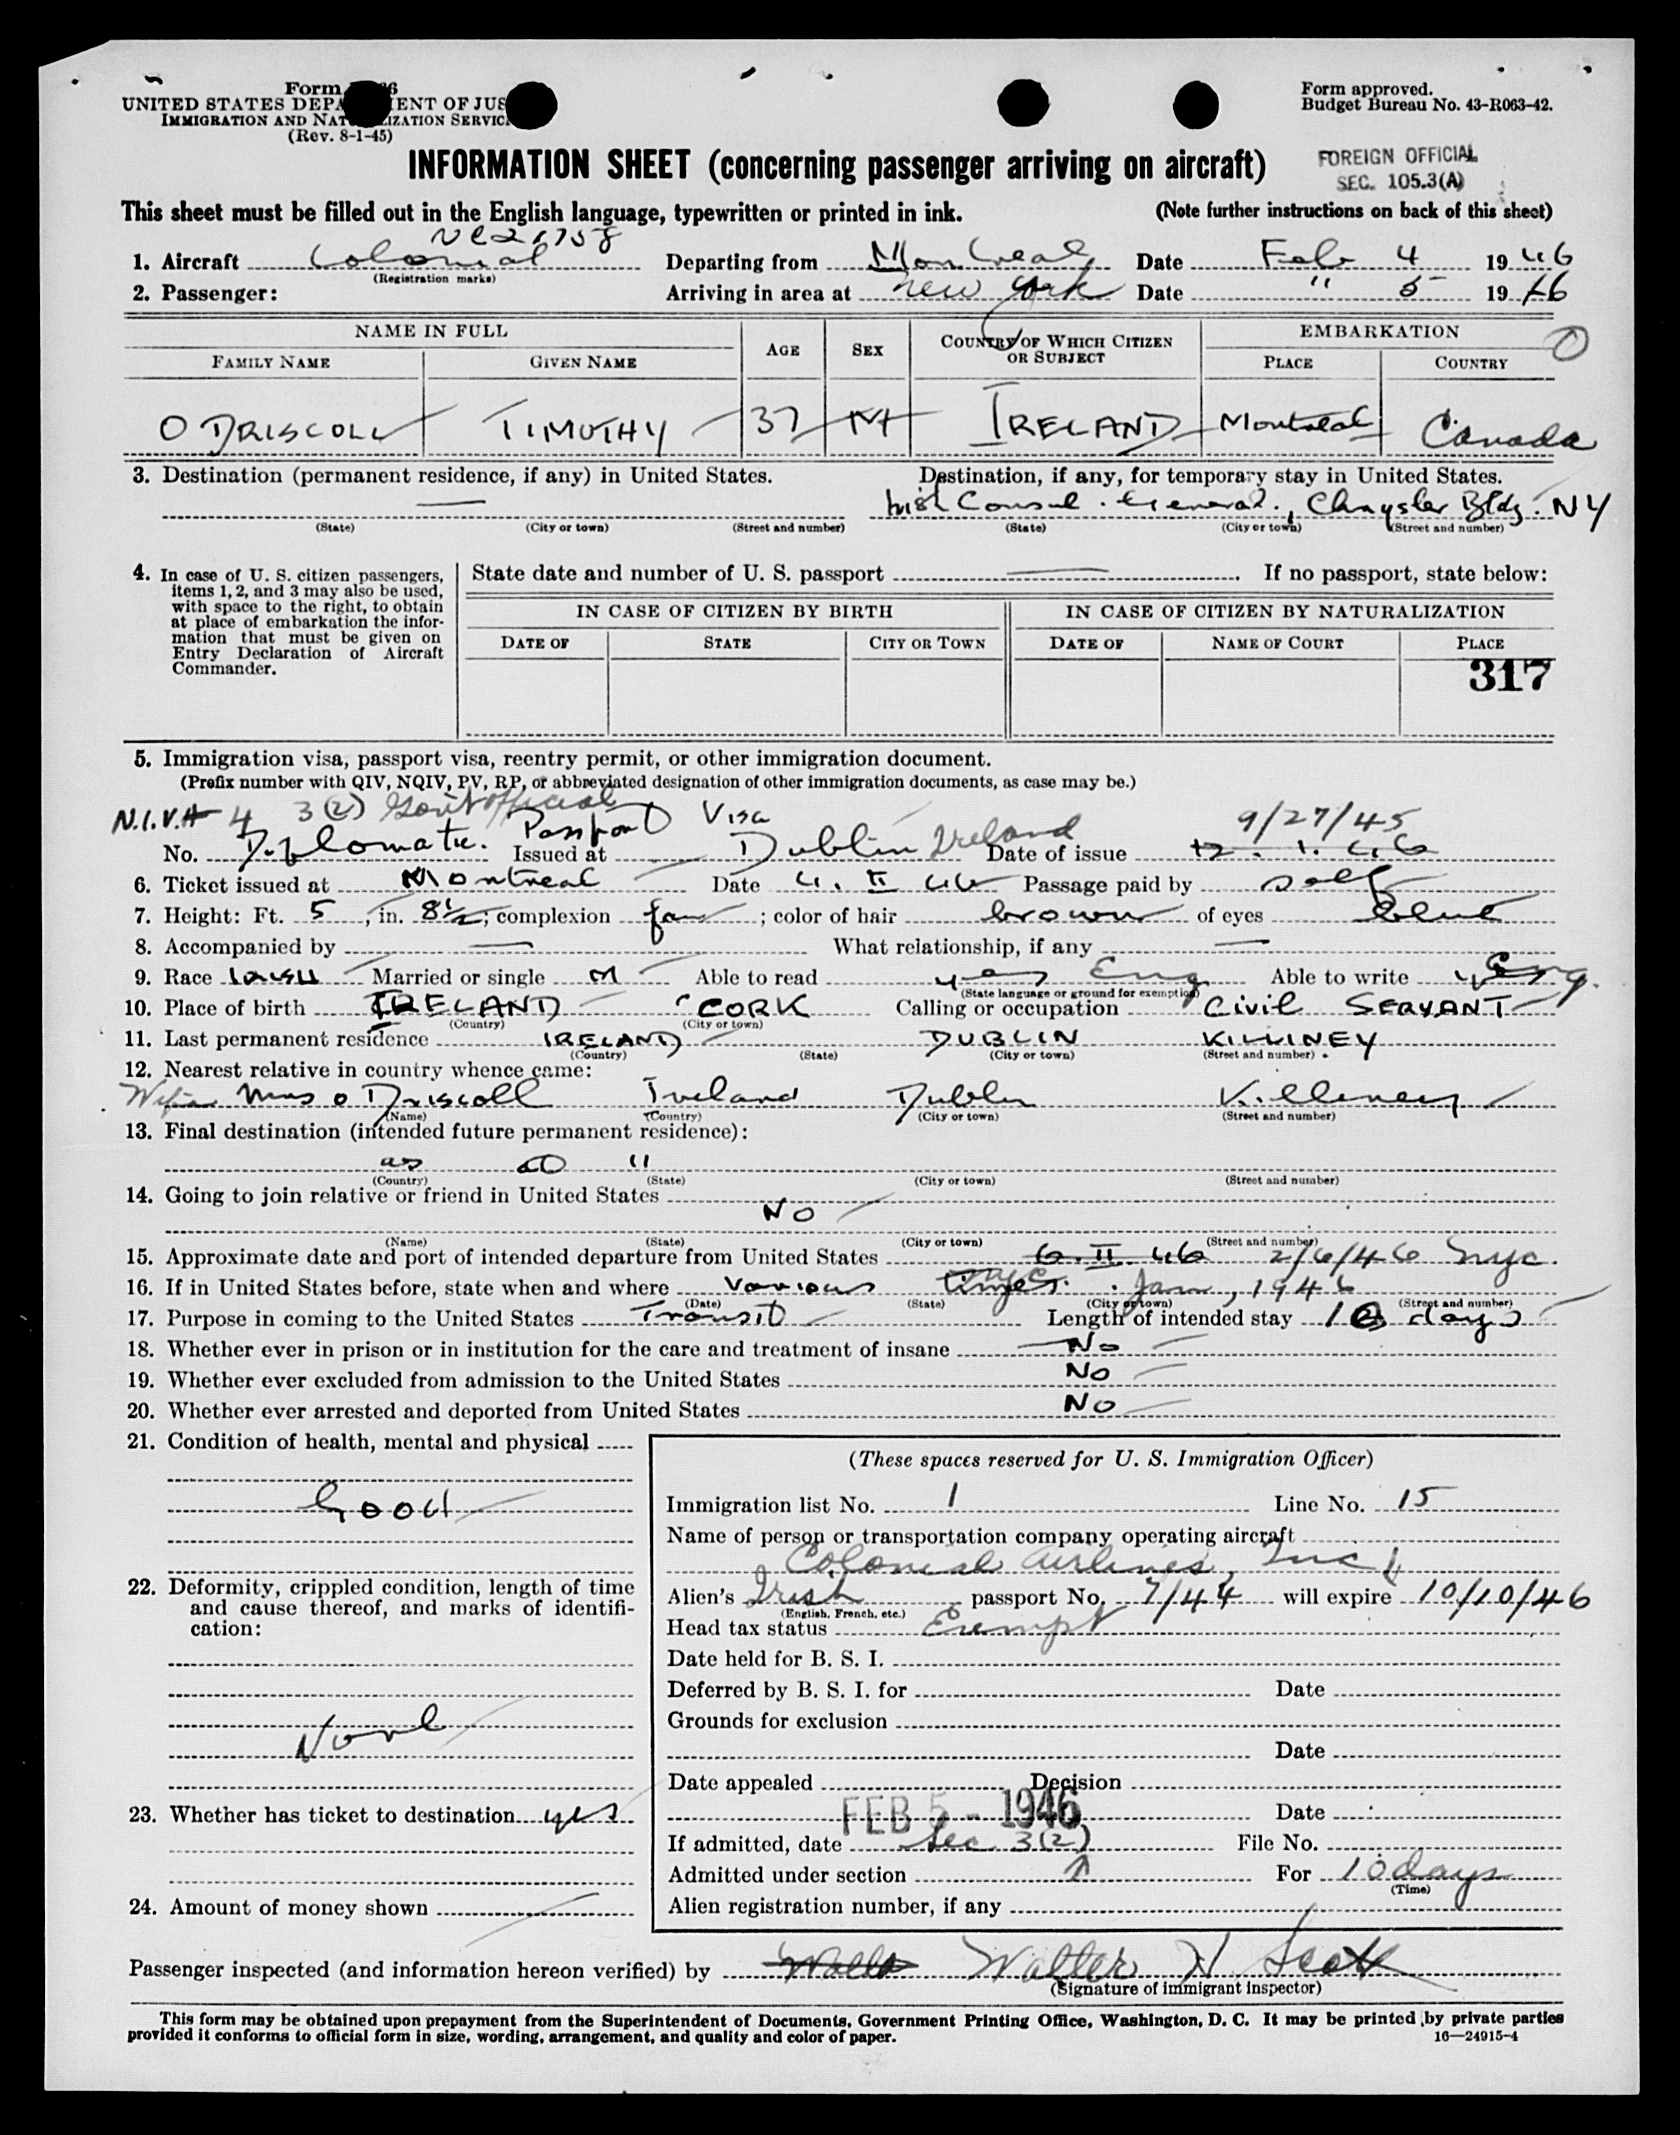 Form 6
UNITED STATES DEPA ENT OF JUS
IMMIGRATION AND NAT IZATION SERVIC
(Rev. 8-1-45)
Form approved.
Budget Bureau No. 43-R063-42.
INFORMATION SHEET (concerning passenger arriving on aircraft)
FOREIGN OFFICIAL
SEC. 105.3(A)
This sheet must be filled out in the English language, typewritten or printed in ink. (Note further instructions on back of this sheet)
1. Aircraft Colonial Departing from Montreal Date Feb 4 1946
(Registration marks)
2. Passenger: Arriving in area at New York Date " 5 1946
NAME IN FULL AGE SEX COUNTRY OF WHICH CITIZEN OR SUBJECT EMBARKATION O
FAMILY NAME GIVEN NAME PLACE COUNTRY
O DRISCOLL TIMOTHY 37 M IRELAND Montreal Canada
3. Destination (permanent residence, if any) in United States. Destination, if any, for temporary stay in United States.
— Irish Consul. General., Chrysler Bldg. NY
(State) (City or town) (Street and number) (State) (City or town) (Street and number)
4. In case of U. S. citizen passengers, items 1, 2, and 3 may also be used, with space to the right, to obtain at place of embarkation the information that must be given on Entry Declaration of Aircraft Commander.
State date and number of U. S. passport — . If no passport, state below:
IN CASE OF CITIZEN BY BIRTH IN CASE OF CITIZEN BY NATURALIZATION
DATE OF STATE CITY OR TOWN DATE OF NAME OF COURT PLACE
317
5. Immigration visa, passport visa, reentry permit, or other immigration document.
(Prefix number with QIV, NQIV, PV, RP, or abbreviated designation of other immigration documents, as case may be.)
N.I.V.# 4 3(2) Gov't official Visa 9/27/45
No. Diplomatic. Passport Issued at Dublin Ireland Date of issue 12. 1. 46
6. Ticket issued at Montreal Date 4. II 46 Passage paid by self
7. Height: Ft. 5, in. 8½; complexion fair; color of hair brown of eyes blue
8. Accompanied by — What relationship, if any —
9. Race IRISH Married or single M Able to read yes Eng Able to write Eng.
(State language or ground for exemption)
10. Place of birth IRELAND CORK Calling or occupation CIVIL SERVANT
(Country) (City or town)
11. Last permanent residence IRELAND DUBLIN KILLINEY
(Country) (State) (City or town) (Street and number)
12. Nearest relative in country whence came:
Wife Mrs O Driscoll Ireland Dublin Killiney
(Name) (Country) (City or town) (Street and number)
13. Final destination (intended future permanent residence):
as at 11
(Country) (State) (City or town) (Street and number)
14. Going to join relative or friend in United States
NO
(Name) (State) (City or town) (Street and number)
15. Approximate date and port of intended departure from United States 6. II 46 2/6/46 nyc.
16. If in United States before, state when and where various times. nyc. Jan, 1946
(Date) (State) (City or town) (Street and number)
17. Purpose in coming to the United States Transit Length of intended stay 10 days
18. Whether ever in prison or in institution for the care and treatment of insane No
19. Whether ever excluded from admission to the United States No
20. Whether ever arrested and deported from United States No
21. Condition of health, mental and physical
Good
22. Deformity, crippled condition, length of time and cause thereof, and marks of identification:
None
23. Whether has ticket to destination yes
24. Amount of money shown
(These spaces reserved for U. S. Immigration Officer)
Immigration list No. 1 Line No. 15
Name of person or transportation company operating aircraft
Colonial Airlines, Inc
Alien's Irish passport No. 7/44 will expire 10/10/46
(English, French, etc.)
Head tax status Exempt
Date held for B. S. I.
Deferred by B. S. I. for Date
Grounds for exclusion
Date
Date appealed Decision
FEB 5 - 1946 Date
If admitted, date Sec 3(2) File No.
Admitted under section For 10 days
(Time)
Alien registration number, if any
Passenger inspected (and information hereon verified) by Walter H Scott
(Signature of immigrant inspector)
This form may be obtained upon prepayment from the Superintendent of Documents, Government Printing Office, Washington, D. C. It may be printed by private parties
provided it conforms to official form in size, wording, arrangement, and quality and color of paper. 16—24915-4